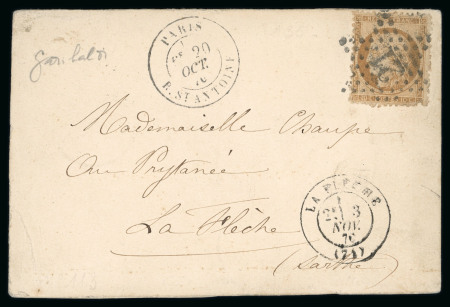 PARIS
20
OCT.
70
R. ST ANTOINE
Garibaldi
Mademoiselle Chaupe
Au Prytanée
La Flèche
(Sarthe)
LA FLECHE
3
NOV.
70
(71)